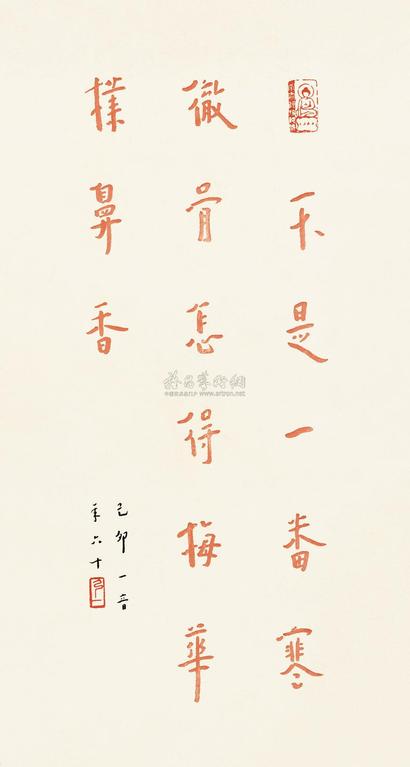 不是一番寒
徹骨怎得梅華
撲鼻香
己卯一音
年六十
雅昌藝術網
www.artron.net